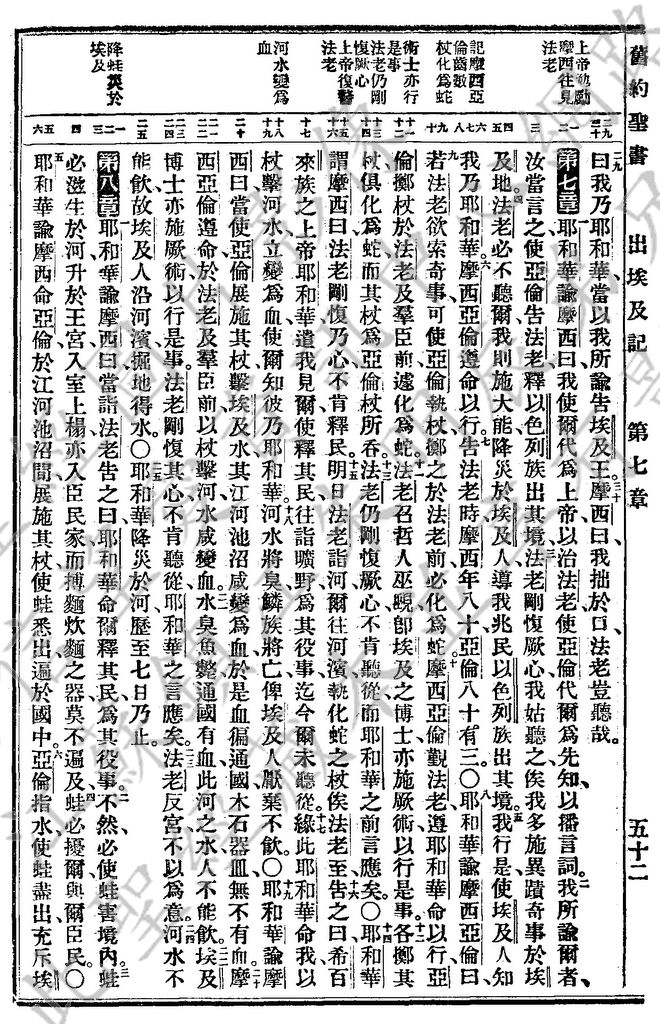 舊約聖書 出埃及記 第七章 五十二
上帝勉勵
摩西往見
法老
記摩西亞
倫齒數
杖化爲蛇
術士亦行
是事
法老仍剛
愎厥心
上帝復警
法老
河水變爲
血
降蛙災於
埃及
曰我乃耶和華當以我所諭告埃及王摩西曰我拙於口法老豈聽哉
第七章 耶和華諭摩西曰我使爾代爲上帝以治法老使亞倫代爾爲先知以播言詞我所諭爾者
汝當言之使亞倫告法老釋以色列族出其境法老剛愎厥心我姑聽之俟我多施異蹟奇事於埃
及地法老必不聽爾我則施大能降災於埃及人導我兆民以色列族出其境我行是使埃及人知
我乃耶和華摩西亞倫遵命以行告法老時摩西年八十亞倫八十有三〇耶和華諭摩西亞倫曰
若法老欲索奇事可使亞倫執杖擲之於法老前必化爲蛇摩西亞倫覲法老遵耶和華命以行亞
倫擲杖於法老及羣臣前遽化爲蛇法老召哲人巫覡卽埃及之博士亦施厥術以行是事各擲其
杖俱化爲蛇而其杖爲亞倫杖所吞法老仍剛愎厥心不肯聽從而耶和華之前言應矣〇耶和華
謂摩西曰法老剛愎乃心不肯釋民明日法老詣河爾往河濱執化蛇之杖俟法老至告之曰希百
來族之上帝耶和華遣我見爾使釋其民往詣曠野爲其役事迄今爾未聽從緣此耶和華命我以
杖擊河水立變爲血使爾知彼乃耶和華河水將臭鱗族將亡俾埃及人厭棄不飲〇耶和華諭摩
西曰當使亞倫展施其杖擊埃及水其江河池沼咸變爲血於是血徧通國木石器皿無不有血摩
西亞倫遵命於法老及羣臣前以杖擊河水咸變血水臭魚斃通國有血此河之水人不能飲埃及
博士亦施厥術以行是事法老剛愎其心不肯聽從耶和華之言應矣法老反宮不以爲意河水不
能飲故埃及人沿河濱掘地得水〇耶和華降災於河歷至七日乃止
第八章 耶和華諭摩西曰當詣法老告之曰耶和華命爾釋其民爲其役事不然必使蛙害境內蛙
必滋生於河升於王宮入室上榻亦入臣民家而摶麵炊麵之器莫不遍及蛙必擾爾與爾臣民〇
耶和華諭摩西命亞倫於江河池沼間展施其杖使蛙悉出遍於國中亞倫指水使蛙盡出充斥埃